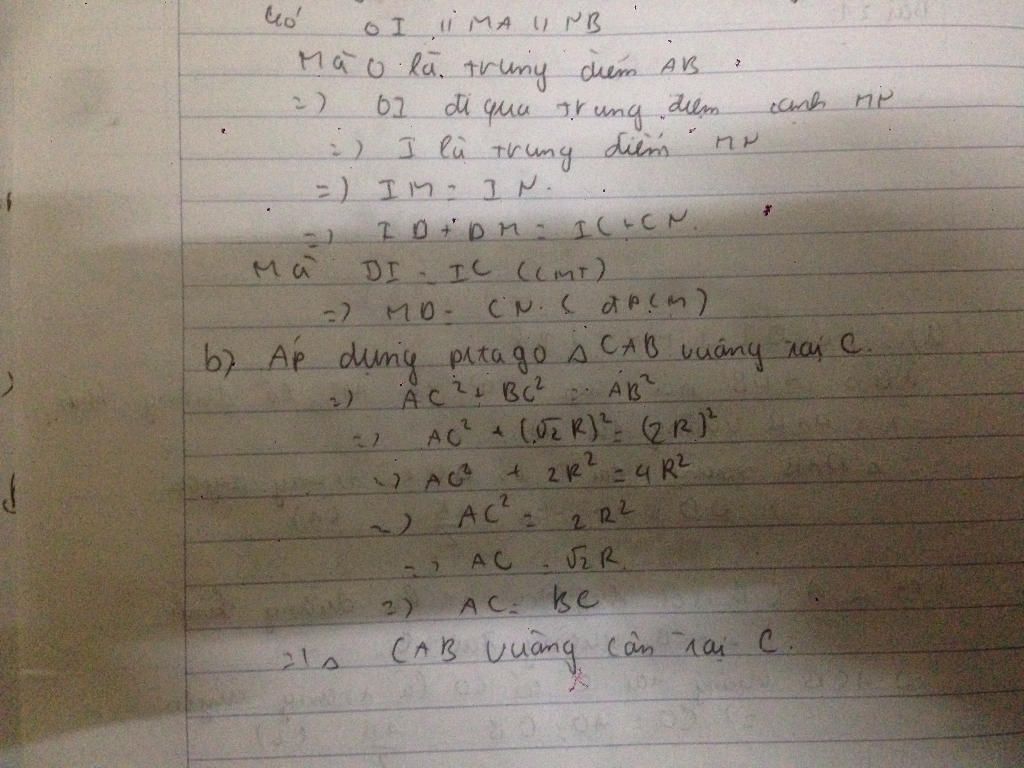 Có OI // MA // NB
Mà O là trung điểm AB
=) OI đi qua trung điểm cạnh MN
=) I là trung điểm MN
=) IM = IN.
=) ID + DM = IC + CN.
Mà DI = IC (CMT)
=) MD = CN. ( đPCM)
b) Áp dụng pitago Δ CAB vuông tại C.
=) AC² + BC² = AB²
=) AC² + (√2 R)² = (2R)²
=) AC² + 2R² = 4R²
=) AC² = 2R²
=) AC = √2 R.
=) AC = BC
=) Δ CAB vuông cân tại C.